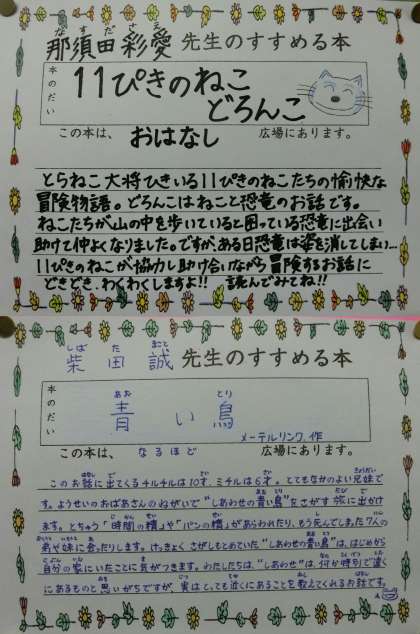 なすだ さえ
那須田 彩愛 先生のすすめる本
本のだい
11ぴきのねこ
どろんこ
この本は、 おはなし 広場にあります。
とらねこ大将ひきいる11ぴきのねこたちの愉快な
冒険物語。どろんこはねこと恐竜のお話です。
ねこたちが山の中を歩いていると困っている恐竜に出会い
助けて仲よくなりました。ですが、ある日恐竜は姿を消してしまい…
11ぴきのねこが協力し助け合いながら冒険するお話に
どきどき、わくわくしますよ!! 読んでみてね!!
しば た まこと
柴田 誠 先生のすすめる本
本のだい
あお とり
青い鳥
メーテルリンク 作
この本は、 なるほど 広場にあります。
このお話に出てくるチルチルは10才、ミチルは6才。とてもなかのよい兄妹で
す。ようせいのおばあさんのねがいで"しあわせの青い鳥"をさがす旅に出かけ
ます。とちゅう「時間の精」や「パンの精」があらわれたり、もう死んでしまった7人の
弟や妹に会ったりします。けっきょくさがしもとめていた"しあわせの青い鳥"は、はじめから
自分の家にいたことに気がつきます。わたしたちは、"しあわせ"は、何か特別で遠く
にあるものと思いがちですが、実はとても近くにあることを教えてくれるお話です。